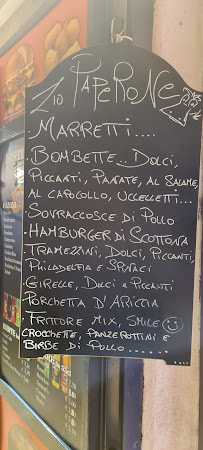 Zio PAPERONE
MARRETTI....
.BOMBETTE.. DOLCI,
PICCANTI, PANATE, AL SALAME,
AL CAPOCOLLO, UCCELLETTI...
.SOVRACCOSCE DI POLLO
.HAMBURGER DI SCOTTONA
.TRAMEZZINI, DOLCI, PICCANTI,
PHILADELFIA E SPINACI
.GIRELLE, DOLCI E PICCANTI
.PORCHETTA D'ARICCIA
.FRITTURE MIX, SMILE
CROCCHETTE, PANZEROTTINI E
BIRBE DI POLLO......